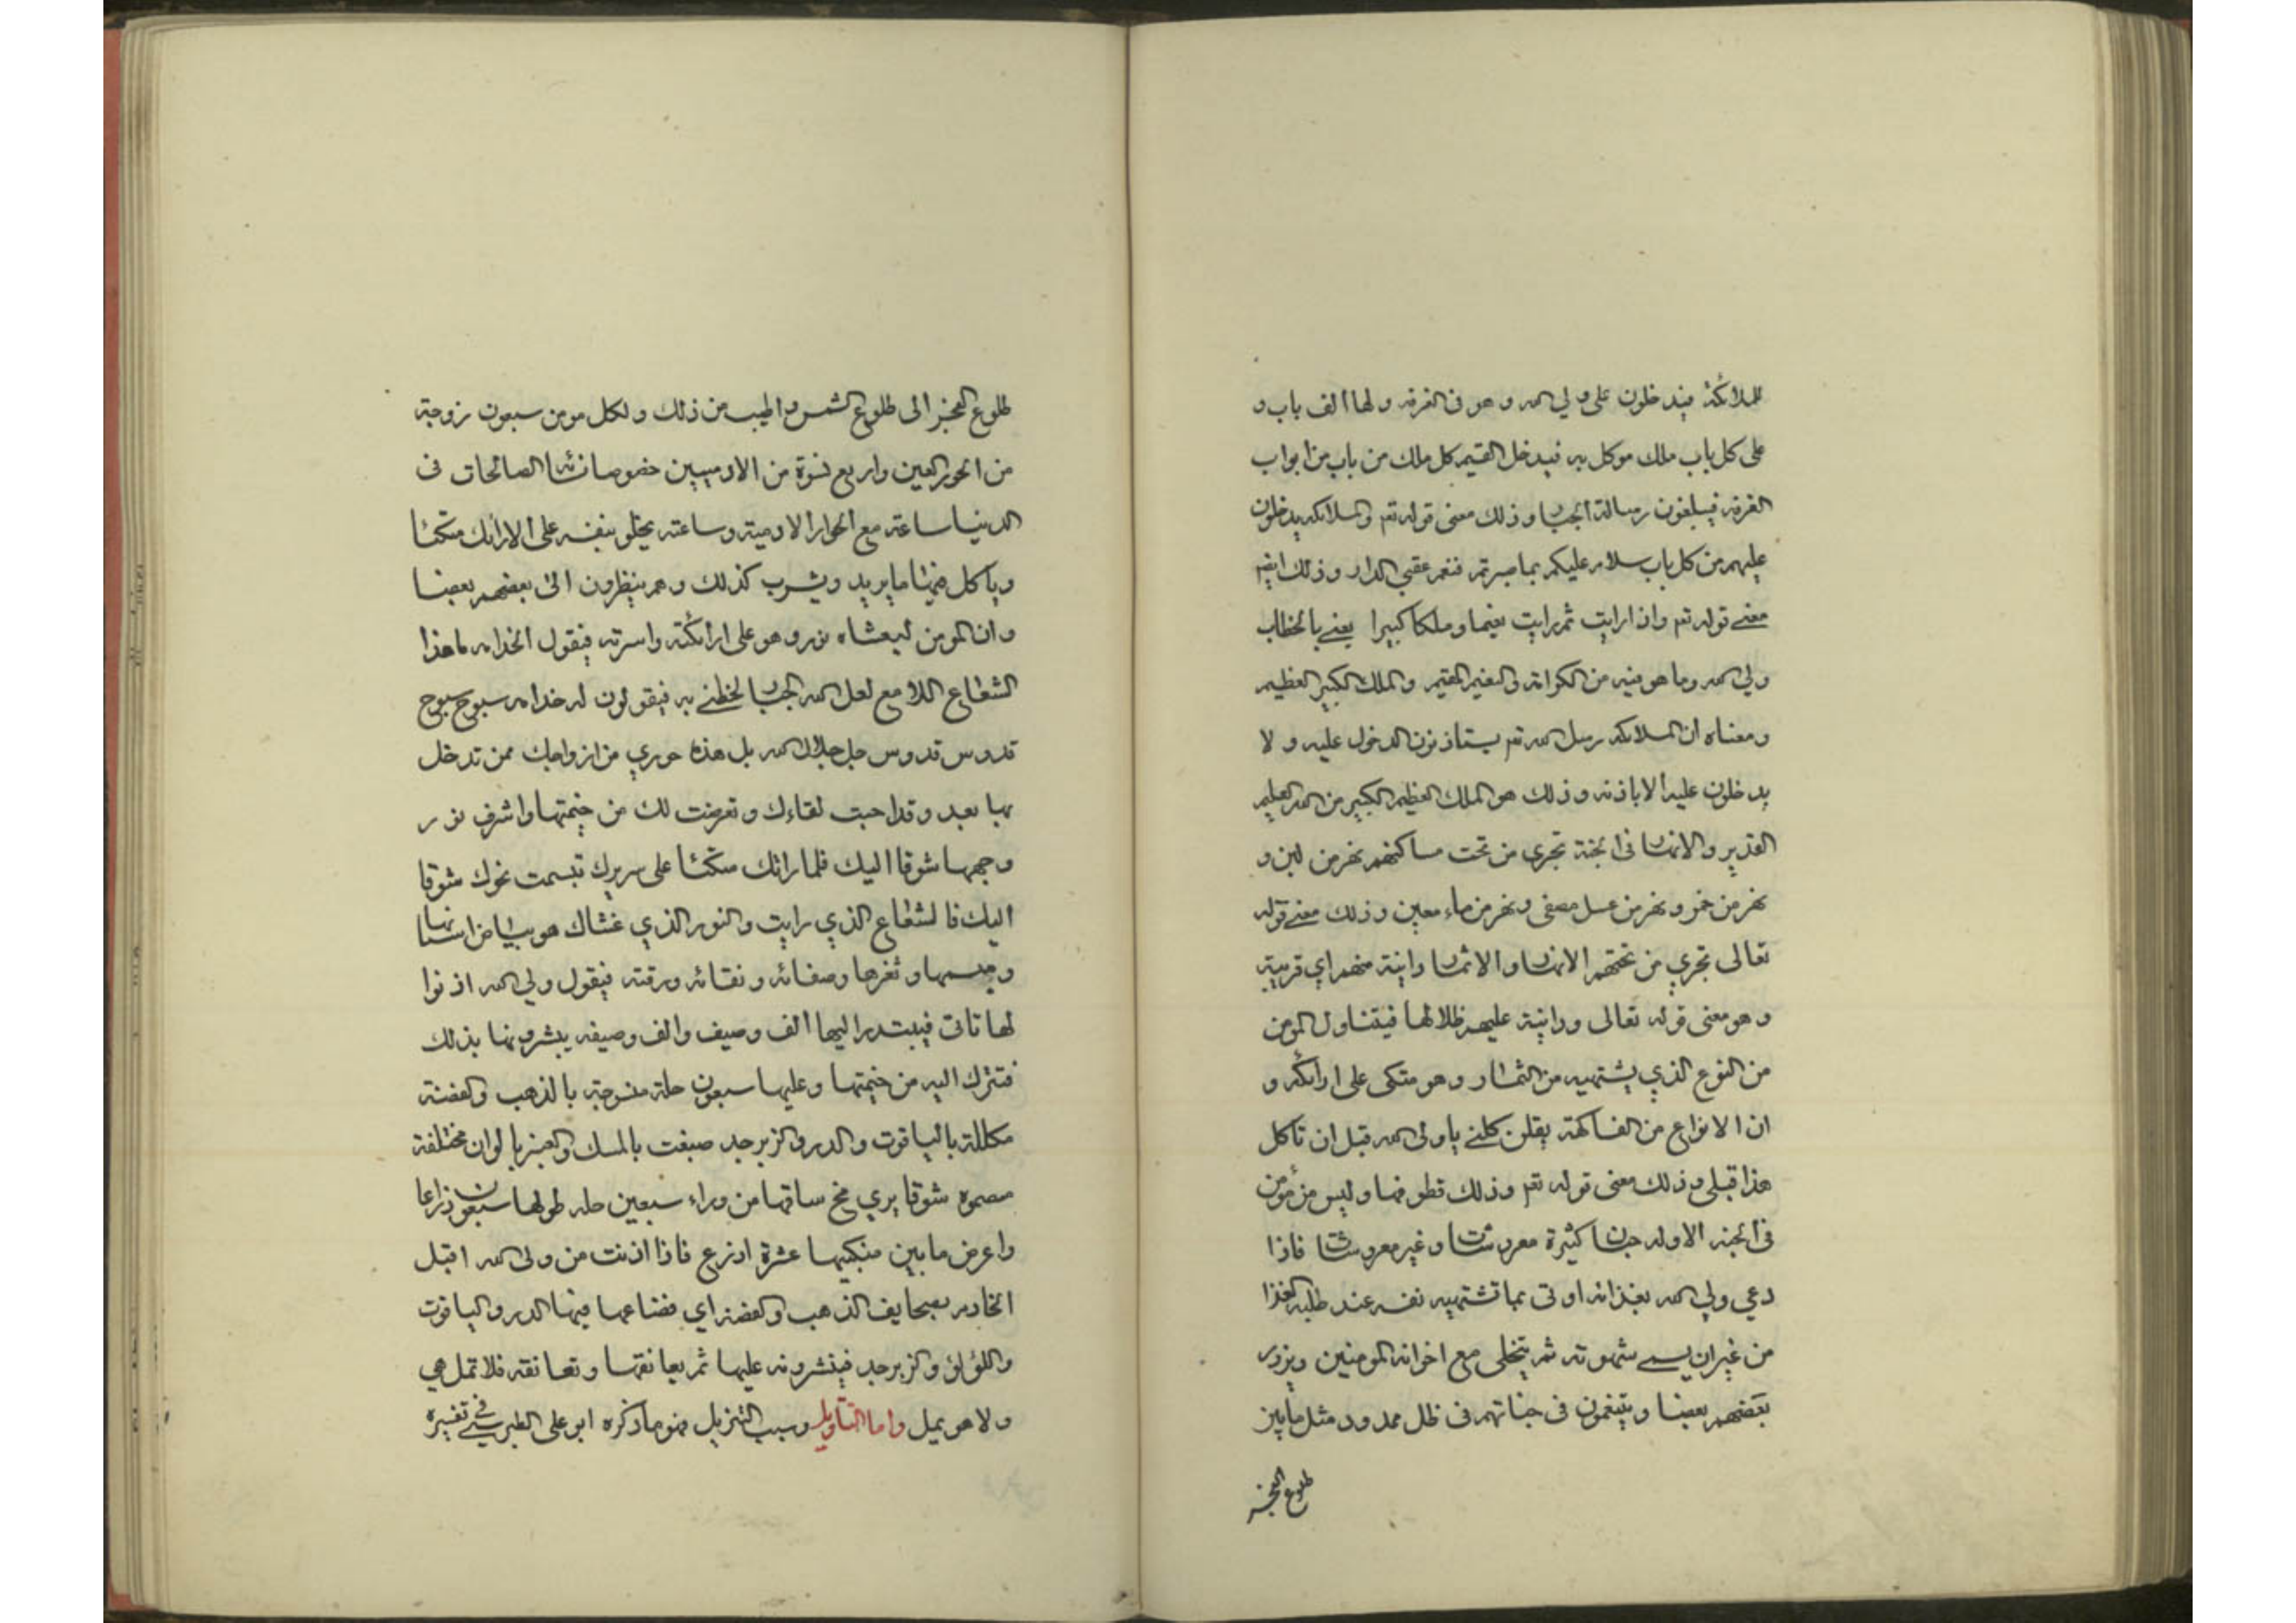 للملائكة فيدخلون على ولي الله وهو في الغرفة ولها الف باب و
على كل باب ملك موكل به فيدخل القيم كل ملك من باب من ابواب
الغرفة فيبلغون رسالة الجبار وذلك معنى قوله تع والملائكه يدخلون
عليهم من كل باب سلام عليكم بما صبرتم فنعم عقبى الدار وذلك ايضا
معنى قوله تع واذا رايت ثم رايت نعيما وملكا كبيرا يعني بالخطاب
ولي الله وما هو فيه من الكرامة والنعيم المقيم والملك الكبير العظيم
ومعناه ان الملائكه رسل الله تع يستاذنون الدخول عليه و لا
يدخلون عليه الا باذنه وذلك هو الملك العظيم الكبير من الله العليم
القدير والانهار في الجنة تجري من تحت مساكنهم نهر من لبن و
نهر من خمر ونهر من عسل مصفى ونهر من ماء معين وذلك معنى قوله
تعالى تجري من تحتهم الانهار والاثمار دانية منهم اي قريبة
وهو معنى قوله تعالى ودانية عليهم ظلالها فيتناول المومن
من النوع الذي يشتهيه من الثمار وهو متكى على ارائكه و
ان الانواع من الفاكهة يقلن كلني يا ولي الله قبل ان تاكل
هذا قبلي وذلك معنى قوله تع وذلك قطوفها وليس من مؤمن
في الجنة الا وله جنان كثيرة معروشات وغير معروشات فاذا
دعي ولي الله بغذائه اوتى بما تشتهيه نفسه عند طلبه الغذا
من غير ان يسمي شهوته ثم يتخلى مع اخوانه المومنين ويزور
بعضهم بعضا ويتنعمون في جناتهم في ظل ممدود مثل ما بين
طلوع الفجر
طلوع الفجر الى طلوع الشمس واطيب من ذلك ولكل مومن سبعون زوجة
من الحور العين واربع نسوة من الادميين خصوصا نسائه الصالحات في
الدنيا ساعة مع الحوار الادمية وساعة يخلو بنفسه على الارائك متكئا
وياكل ما يريد ويشرب كذلك وهم ينظرون الى بعضهم بعضا
وان المومن ليغشاه نور وهو على ارائكته واسرته فيقول لخدامه ما هذا
الشعاع اللامع لعل الله الجبار لحظني به فيقولون له خدامه سبوح سبوح
قدوس قدوس جل جلال الله بل هذه حوري من ازواجك ممن تدخل
بها بعد وقد احبت لقاءك وتعرضت لك من خيمتها واشرف نور
وجهها شوقا اليك فلما راتك متكئا على سريرك تبسمت نحوك شوقا
اليك فالشعاع الذي رايت والنور الذي غشاك هو بياض اسنانها
ومبسمها وثغرها وصفائه ونقائه ورقته فيقول ولي الله اذنوا
لها تاتي فيبتدر اليها الف وصيف والف وصيفه يبشرونها بذلك
فتنزل اليه من خيمتها وعليها سبعون حلة منسوجة بالذهب والفضة
مكللة بالياقوت والدر والزبرجد صبغت بالمسك والعنبر بالوان مختلفة
شوقا يرى مخ ساقها من وراء سبعين حله طولها سبعون ذراعا
واعرض ما بين منكبيها عشرة اذرع فاذا اذنت من ولي الله اقبل
الخادم بصحايف الذهب والفضة اي فيها الدر والياقوت
واللؤلؤ والزبرجد فينشرونه عليها ثم يعانقها وتعانقه فلا تمل هي
ولا هو يمل واما التاويل وسبب التنزيل فهو ما ذكره ابو علي الطبرسي في تفسيره